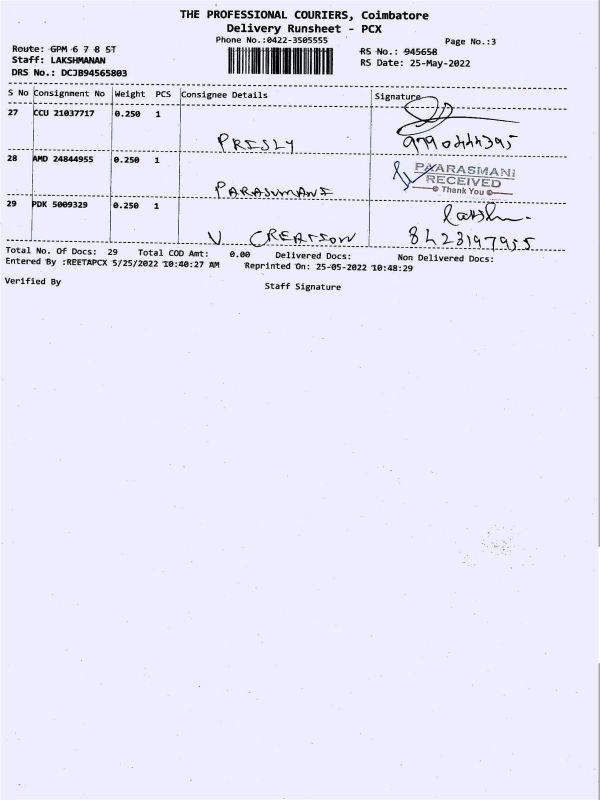 THE PROFESSIONAL COURIERS, Coimbatore
Delivery Runsheet - PCX
Phone No.:0422-3505555
Page No.:3
Route: GPM 6 7 8 ST
RS No.: 945658
Staff: LAKSHMANAN
RS Date: 25-May-2022
DRS No.: DCJB94565803
S No Consignment No Weight PCS Consignee Details Signature
27 CCU 21037717 0.250 1
PRISLY 9790444395
28 AMD 24844955 0.250 1
PAARASMANI
RECEIVED
Thank You
PARASUMANI
29 PDK 5009329 0.250 1
V CREATION 8423197955
Total No. Of Docs: 29 Total COD Amt: 0.00 Delivered Docs: Non Delivered Docs:
Entered By :REETAPCX 5/25/2022 10:40:27 AM Reprinted On: 25-05-2022 10:48:29
Verified By Staff Signature